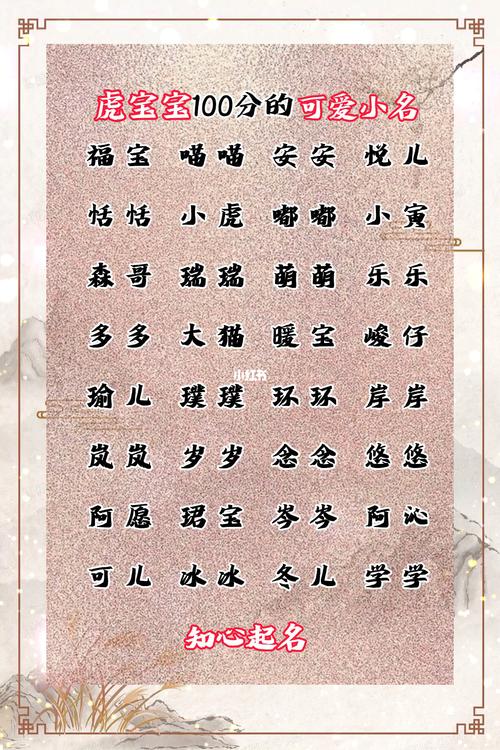 虎宝宝100分的可爱小名
福宝 喵喵 安安 悦儿
恬恬 小虎 嘟嘟 小寅
森哥 瑞瑞 萌萌 乐乐
多多 大猫 暖宝 峻仔
小红书
瑜儿 璞璞 环环 岸岸
岚岚 岁岁 念念 悠悠
阿愿 珺宝 岑岑 阿沁
可儿 冰冰 冬儿 学学
知心起名